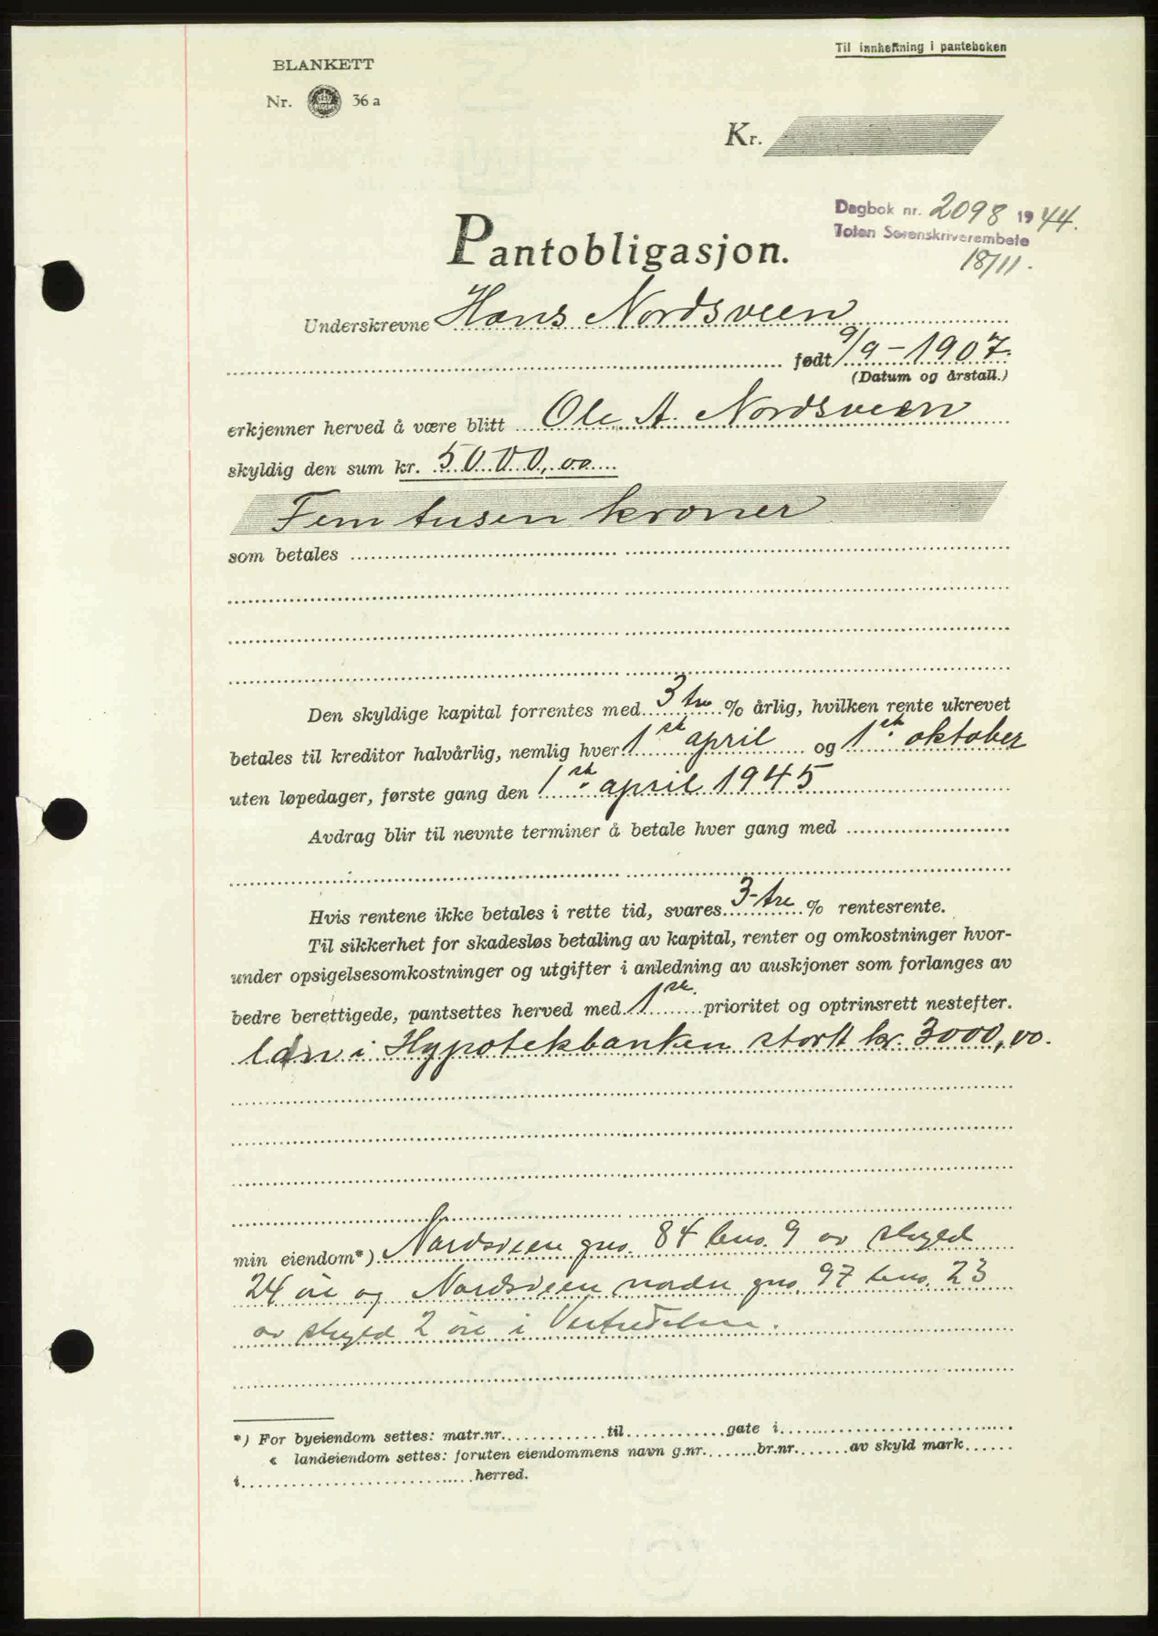 Til innheftning i panteboken
BLANKETT
Nr. 36 a
Kr.
Dagbok nr. 2098 1944.
Toten Sorenskriverembete
18/11.
Pantobligasjon.
Underskrevne Hans Nordsveen
født 9/9-1907.
(Datum og årstall.)
erkjenner herved å være blitt Ole A. Nordsveen
skyldig den sum kr. 5000,00
Fem tusen kroner
som betales
Den skyldige kapital forrentes med 3 tre % årlig, hvilken rente ukrevet
betales til kreditor halvårlig, nemlig hver 1st april og 1st oktober
uten løpedager, første gang den 1st april 1945
Avdrag blir til nevnte terminer å betale hver gang med
Hvis rentene ikke betales i rette tid, svares 3-tre % rentesrente.
Til sikkerhet for skadesløs betaling av kapital, renter og omkostninger hvor-
under opsigelsesomkostninger og utgifter i anledning av auskjoner som forlanges av
bedre berettigede, pantsettes herved med 1st prioritet og optrinsrett nestefter.
lån i Hypotekbanken stort kr. 3000,00.
min eiendom*) Nordsveen gno. 84 bno. 9 av skyld
24 øre og Nordsveen nordre gno. 97 bno. 23
av skyld 2 øre i
*) For byeiendom settes: matr.nr. til gate i
« landeiendom settes: foruten eiendommens navn g.nr. br.nr. av skyld mark
i herred.